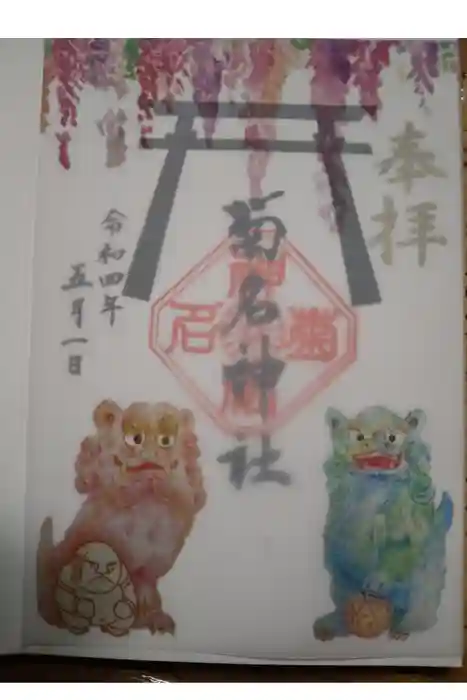 奉拝
菊名神社
菊名
令和四年
五月一日